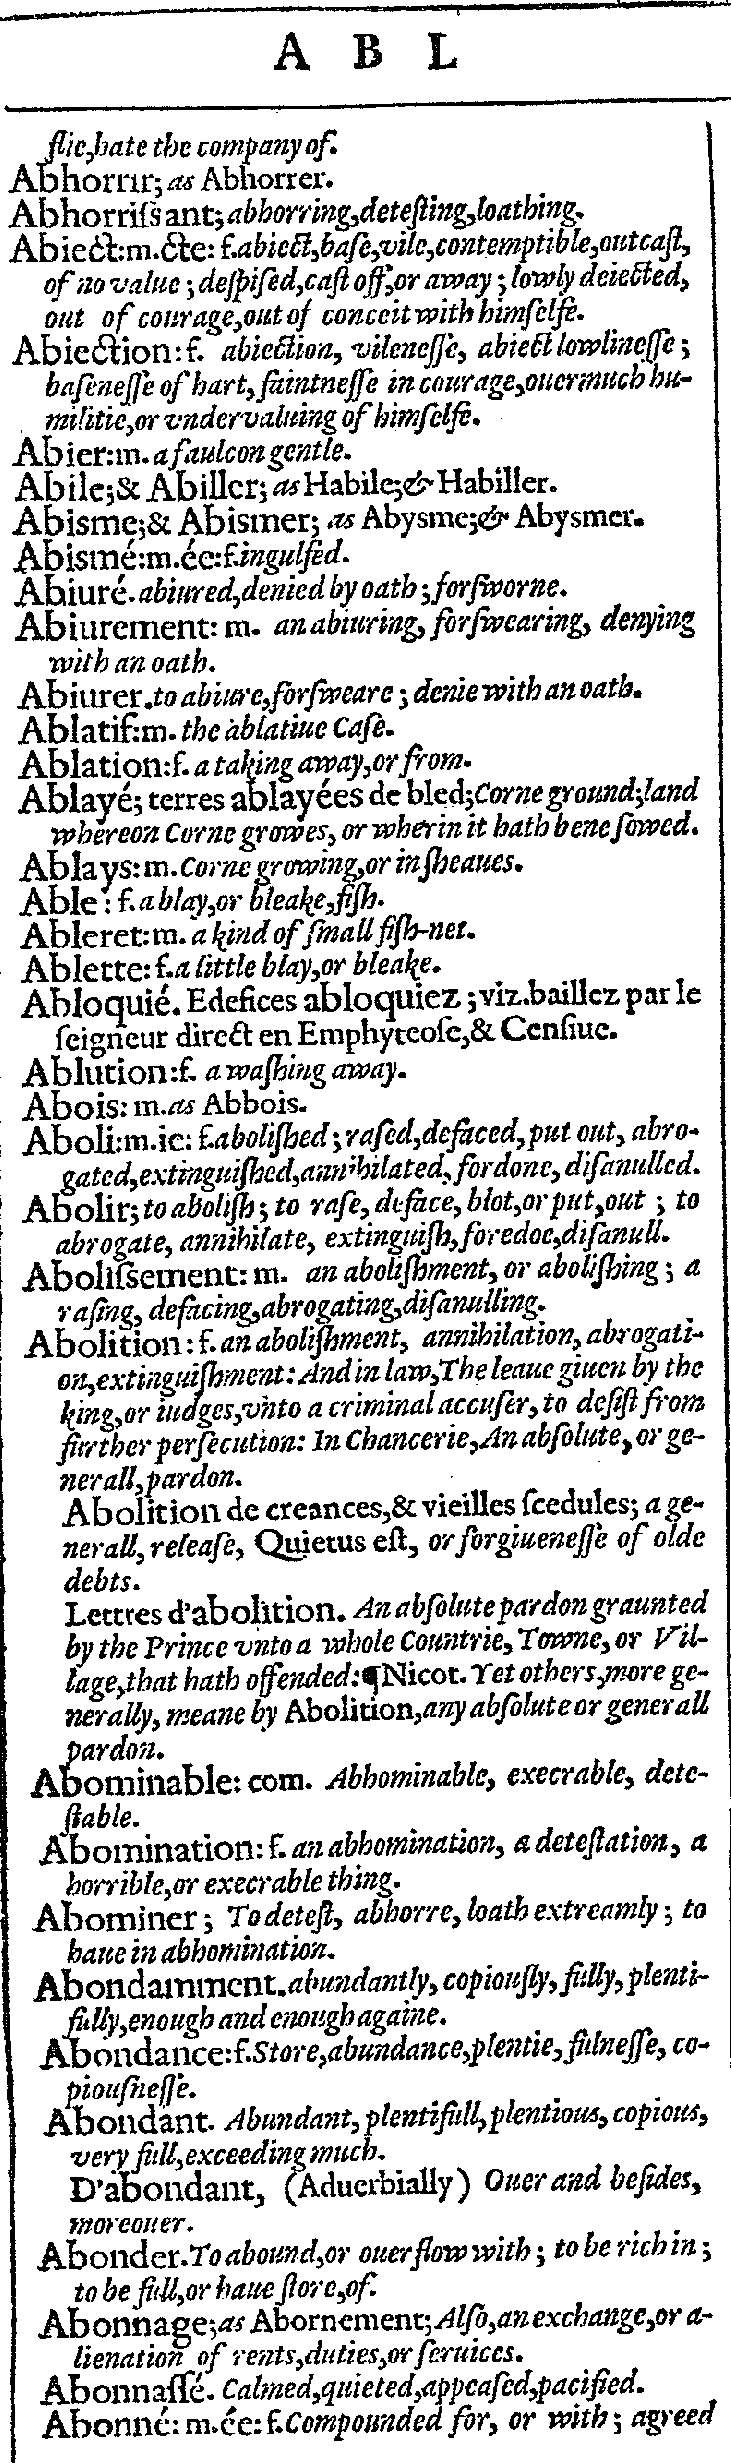 A B L
flie,hate the company of.
Abhorrir; as Abhorrer.
Abhorriſsant; abhorring,deteſting,loathing.
Abiect:m.cte: f.abiect,baſe,vile,contemptible,outcaſt,
of no value ; deſpiſed,caſt off,or away ; lowly deiected,
out of courage,out of conceit with himſelfe.
Abiection: f. abiection, vileneſſe, abiect lowlineſſe ;
baſeneſſe of hart, faintneſſe in courage,ouermuch hu-
militie,or vndervaluing of himſelfe.
Abier:m. a faulcon gentle.
Abile;& Abiller; as Habile;& Habiller.
Abisme;& Abismer; as Abysme;& Abysmer.
Abismé:m.ée:f.ingulfed.
Abiuré. abiured,denied by oath ; forſworne.
Abiurement: m. an abiuring, forſwearing, denying
with an oath.
Abiurer.to abiure,forſweare ; denie with an oath.
Ablatif:m. the ablatiue Caſe.
Ablation:f. a taking away,or from.
Ablayé; terres ablayées de bled;Corne ground;land
whereon Corne growes, or wherin it hath bene ſowed.
Ablays:m.Corne growing,or in ſheaues.
Able : f. a blay,or bleake,fiſh.
Ableret:m. a kind of ſmall fiſh-net.
Ablette: f.a little blay,or bleake.
Abloquié. Edefices abloquiez ; viz.baillez par le
ſeigneur direct en Emphyteoſe,& Cenſiue.
Ablution:f. a waſhing away.
Abois: m.as Abbois.
Aboli:m.ie: f.aboliſhed ; raſed,defaced,put out, abro-
gated,extinguiſhed,annihilated, fordone, diſanulled.
Abolir; to aboliſh ; to raſe, deface, blot,or put,out ; to
abrogate, annihilate, extinguiſh,foredoe,diſanull.
Aboliſsement: m. an aboliſhment, or aboliſhing ; a
raſing, defacing,abrogating,diſanulling.
Abolition : f. an aboliſhment, annihilation, abrogati-
on,extinguiſhment: And in law,The leaue giuen by the
king,or iudges,vnto a criminal accuſer, to deſiſt from
further perſecution: In Chancerie,An abſolute, or ge-
nerall,pardon.
Abolition de creances,& vieilles ſcedules; a ge-
nerall, releaſe, Quietus eſt, or forgiueneſſe of olde
debts.
Lettres d'abolition. An abſolute pardon graunted
by the Prince vnto a whole Countrie, Towne, or Vil-
lage,that hath offended:¶Nicot. Yet others,more ge-
nerally, meane by Abolition,any abſolute or generall
pardon.
Abominable: com. Abhominable, execrable, dete-
ſtable.
Abomination: f. an abhomination, a deteſtation, a
horrible,or execrable thing.
Abominer ; To deteſt, abhorre, loath extreamly ; to
haue in abhomination.
Abondamment.abundantly, copiouſly, fully, plenti-
fully,enough and enough againe.
Abondance:f.Store,abundance,plentie, fulneſſe, co-
piouſneſſe.
Abondant. Abundant, plentifull,plentious, copious,
very full,exceeding much.
D'abondant, (Aduerbially) Ouer and beſides,
moreouer.
Abonder.To abound,or ouerflow with ; to be rich in ;
to be full,or haue ſtore,of.
Abonnage;as Abornement; Alſo,an exchange,or a-
lienation of rents,duties,or ſeruices.
Abonnaſſé. Calmed,quieted,appeaſed,pacified.
Abonné: m.ée: f.Compounded for, or with ; agreed